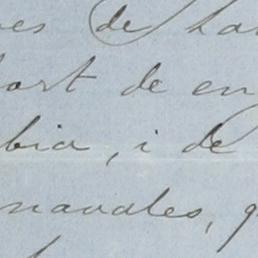 es de ha
ort de en
bia, i de
navales, q